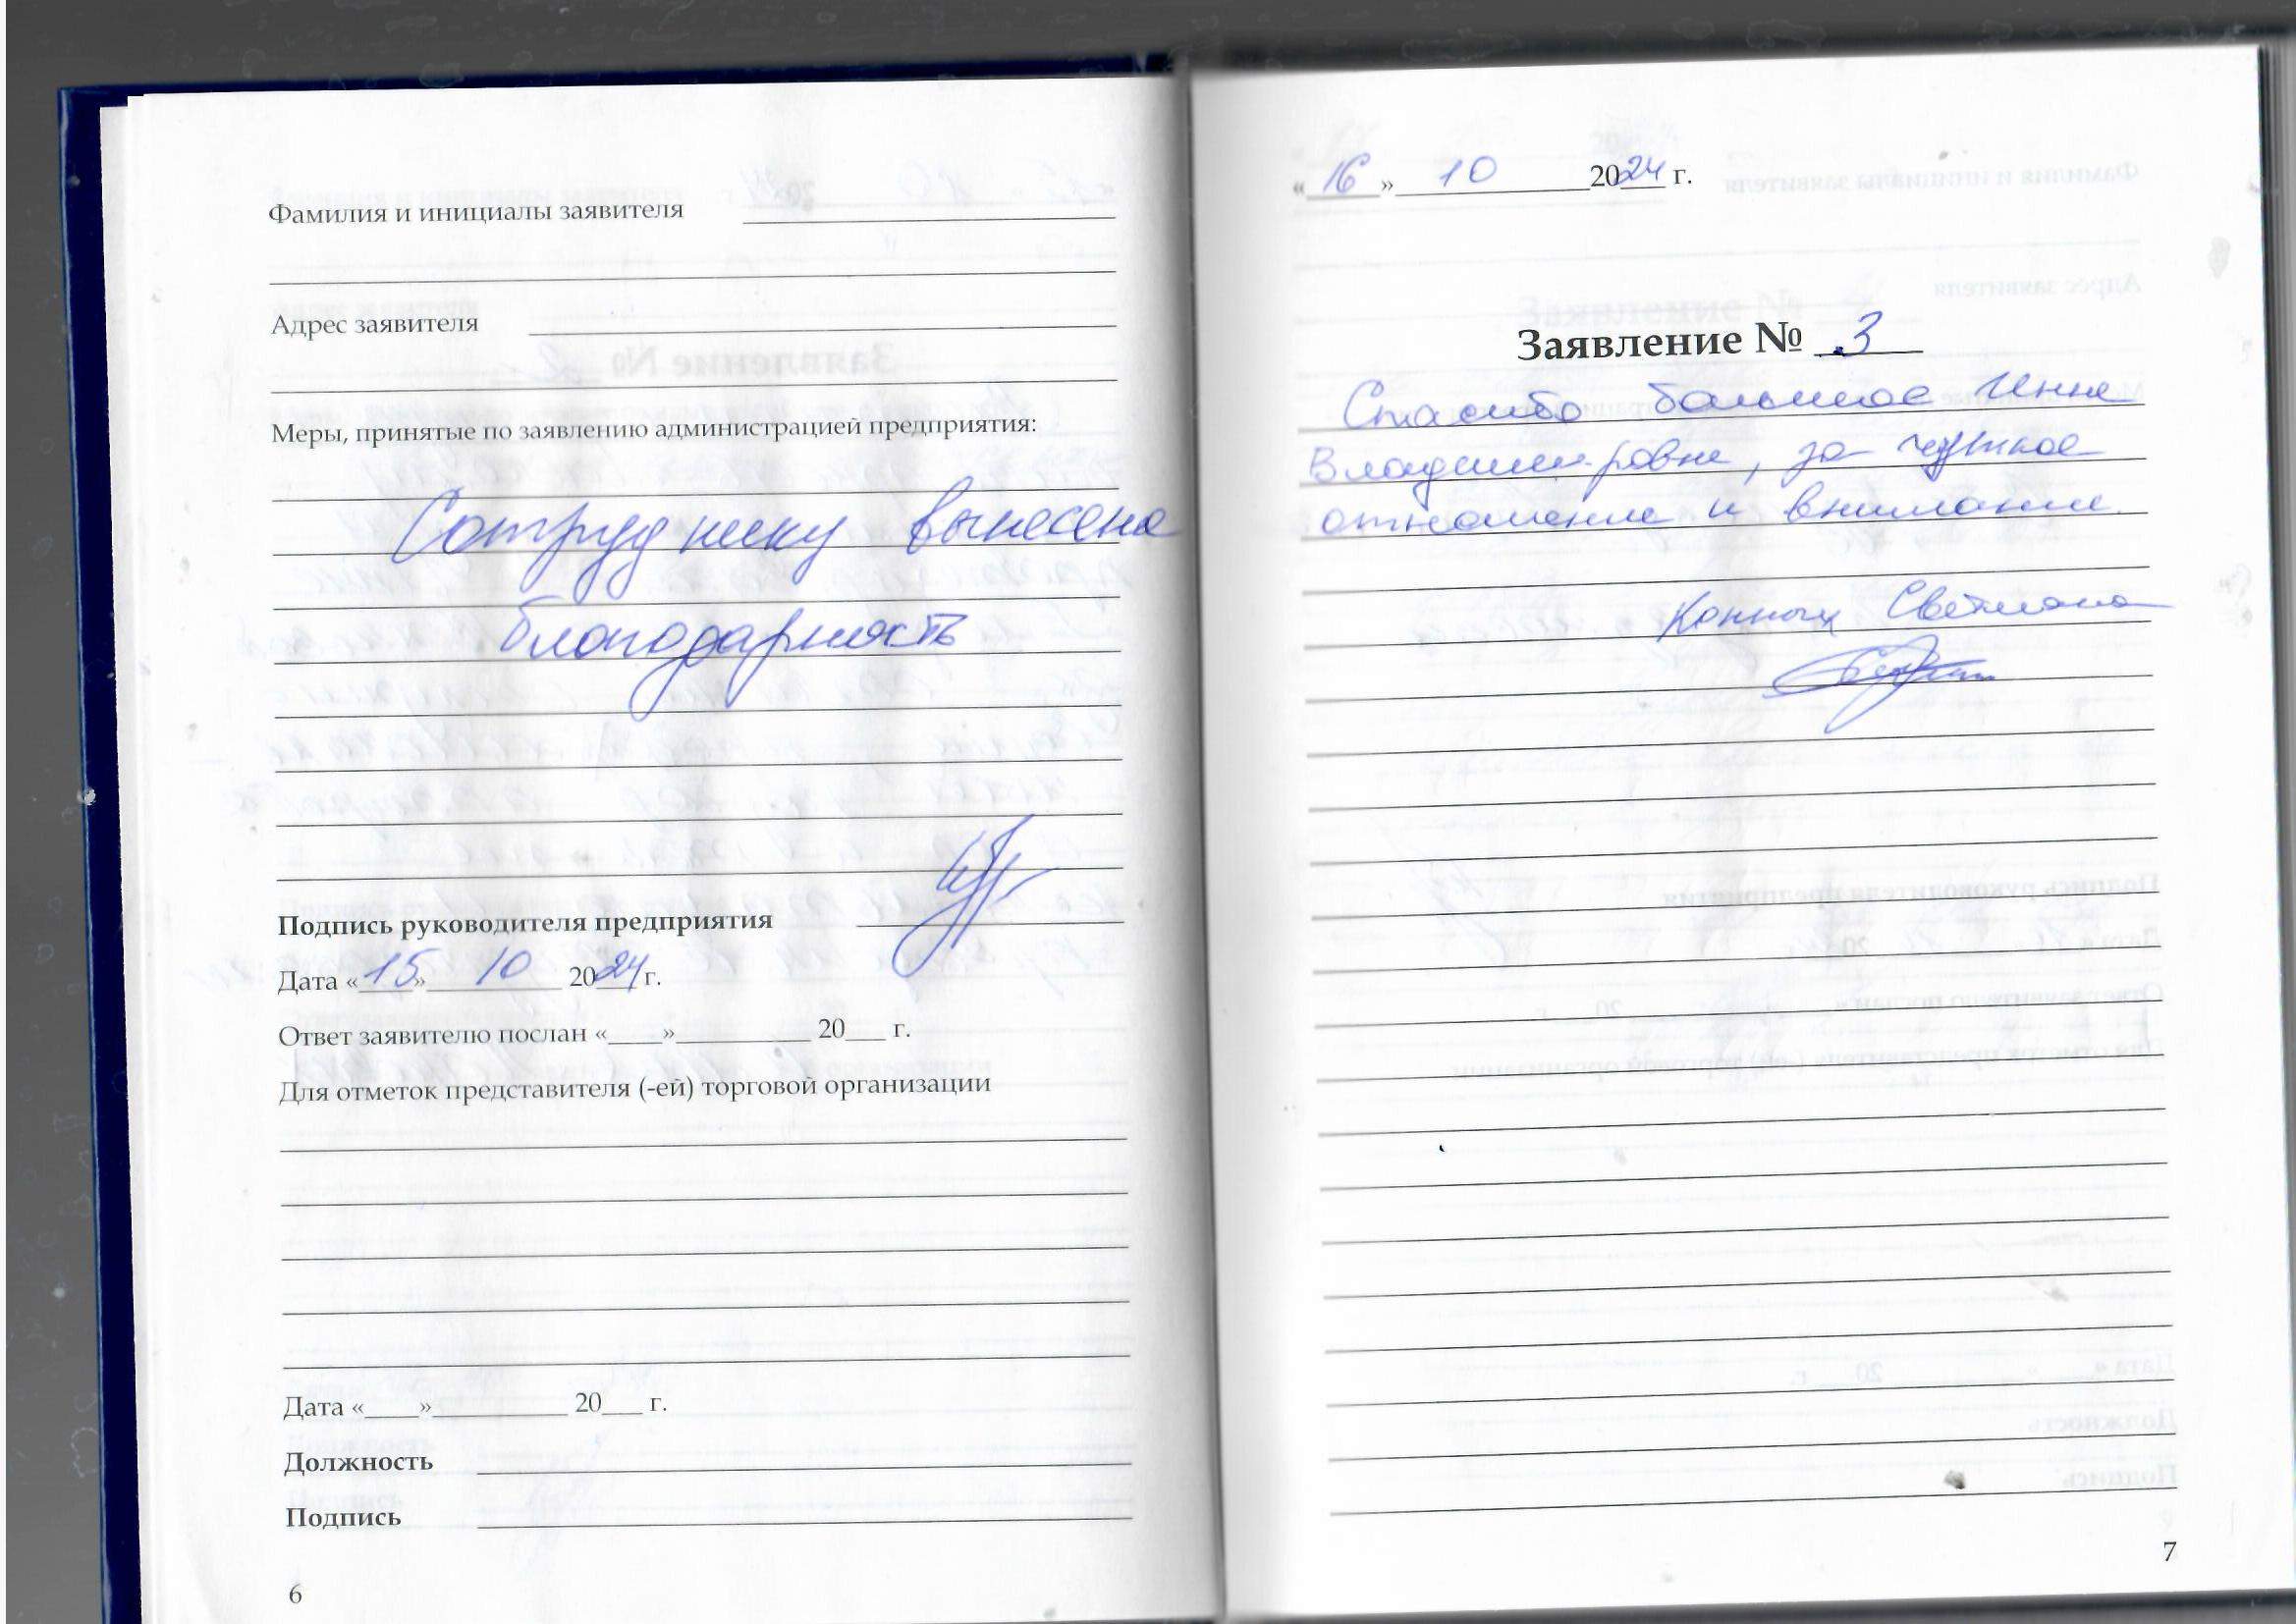 Фамилия и инициалы заявителя
Адрес заявителя
Меры, принятые по заявлению администрацией предприятия:
Сотруднику вынесена
благодарность
Подпись руководителя предприятия
Дата «15» 10 2024 г.
Ответ заявителю послан «____»__________ 20___ г.
Для отметок представителя (-ей) торговой организации
Дата «____»__________ 20___ г.
Должность
Подпись
6
«16» 10 2024 г.
Заявление № 3
Спасибо большое Инне
Владимировне, за чуткое
отношение и внимание.
Конных Светлана
7